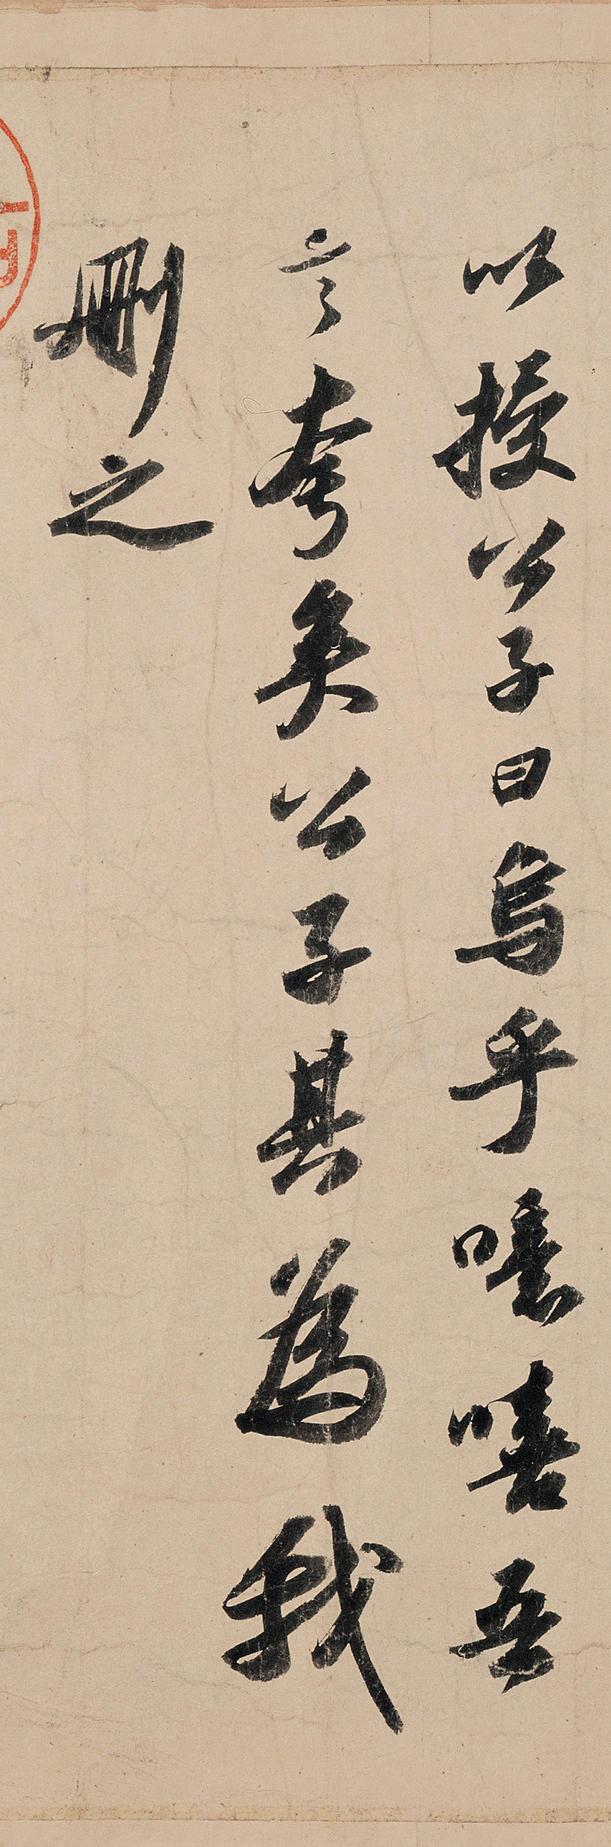 以授公子曰烏乎噫嘻吾
言夸矣公子其為我
刪之